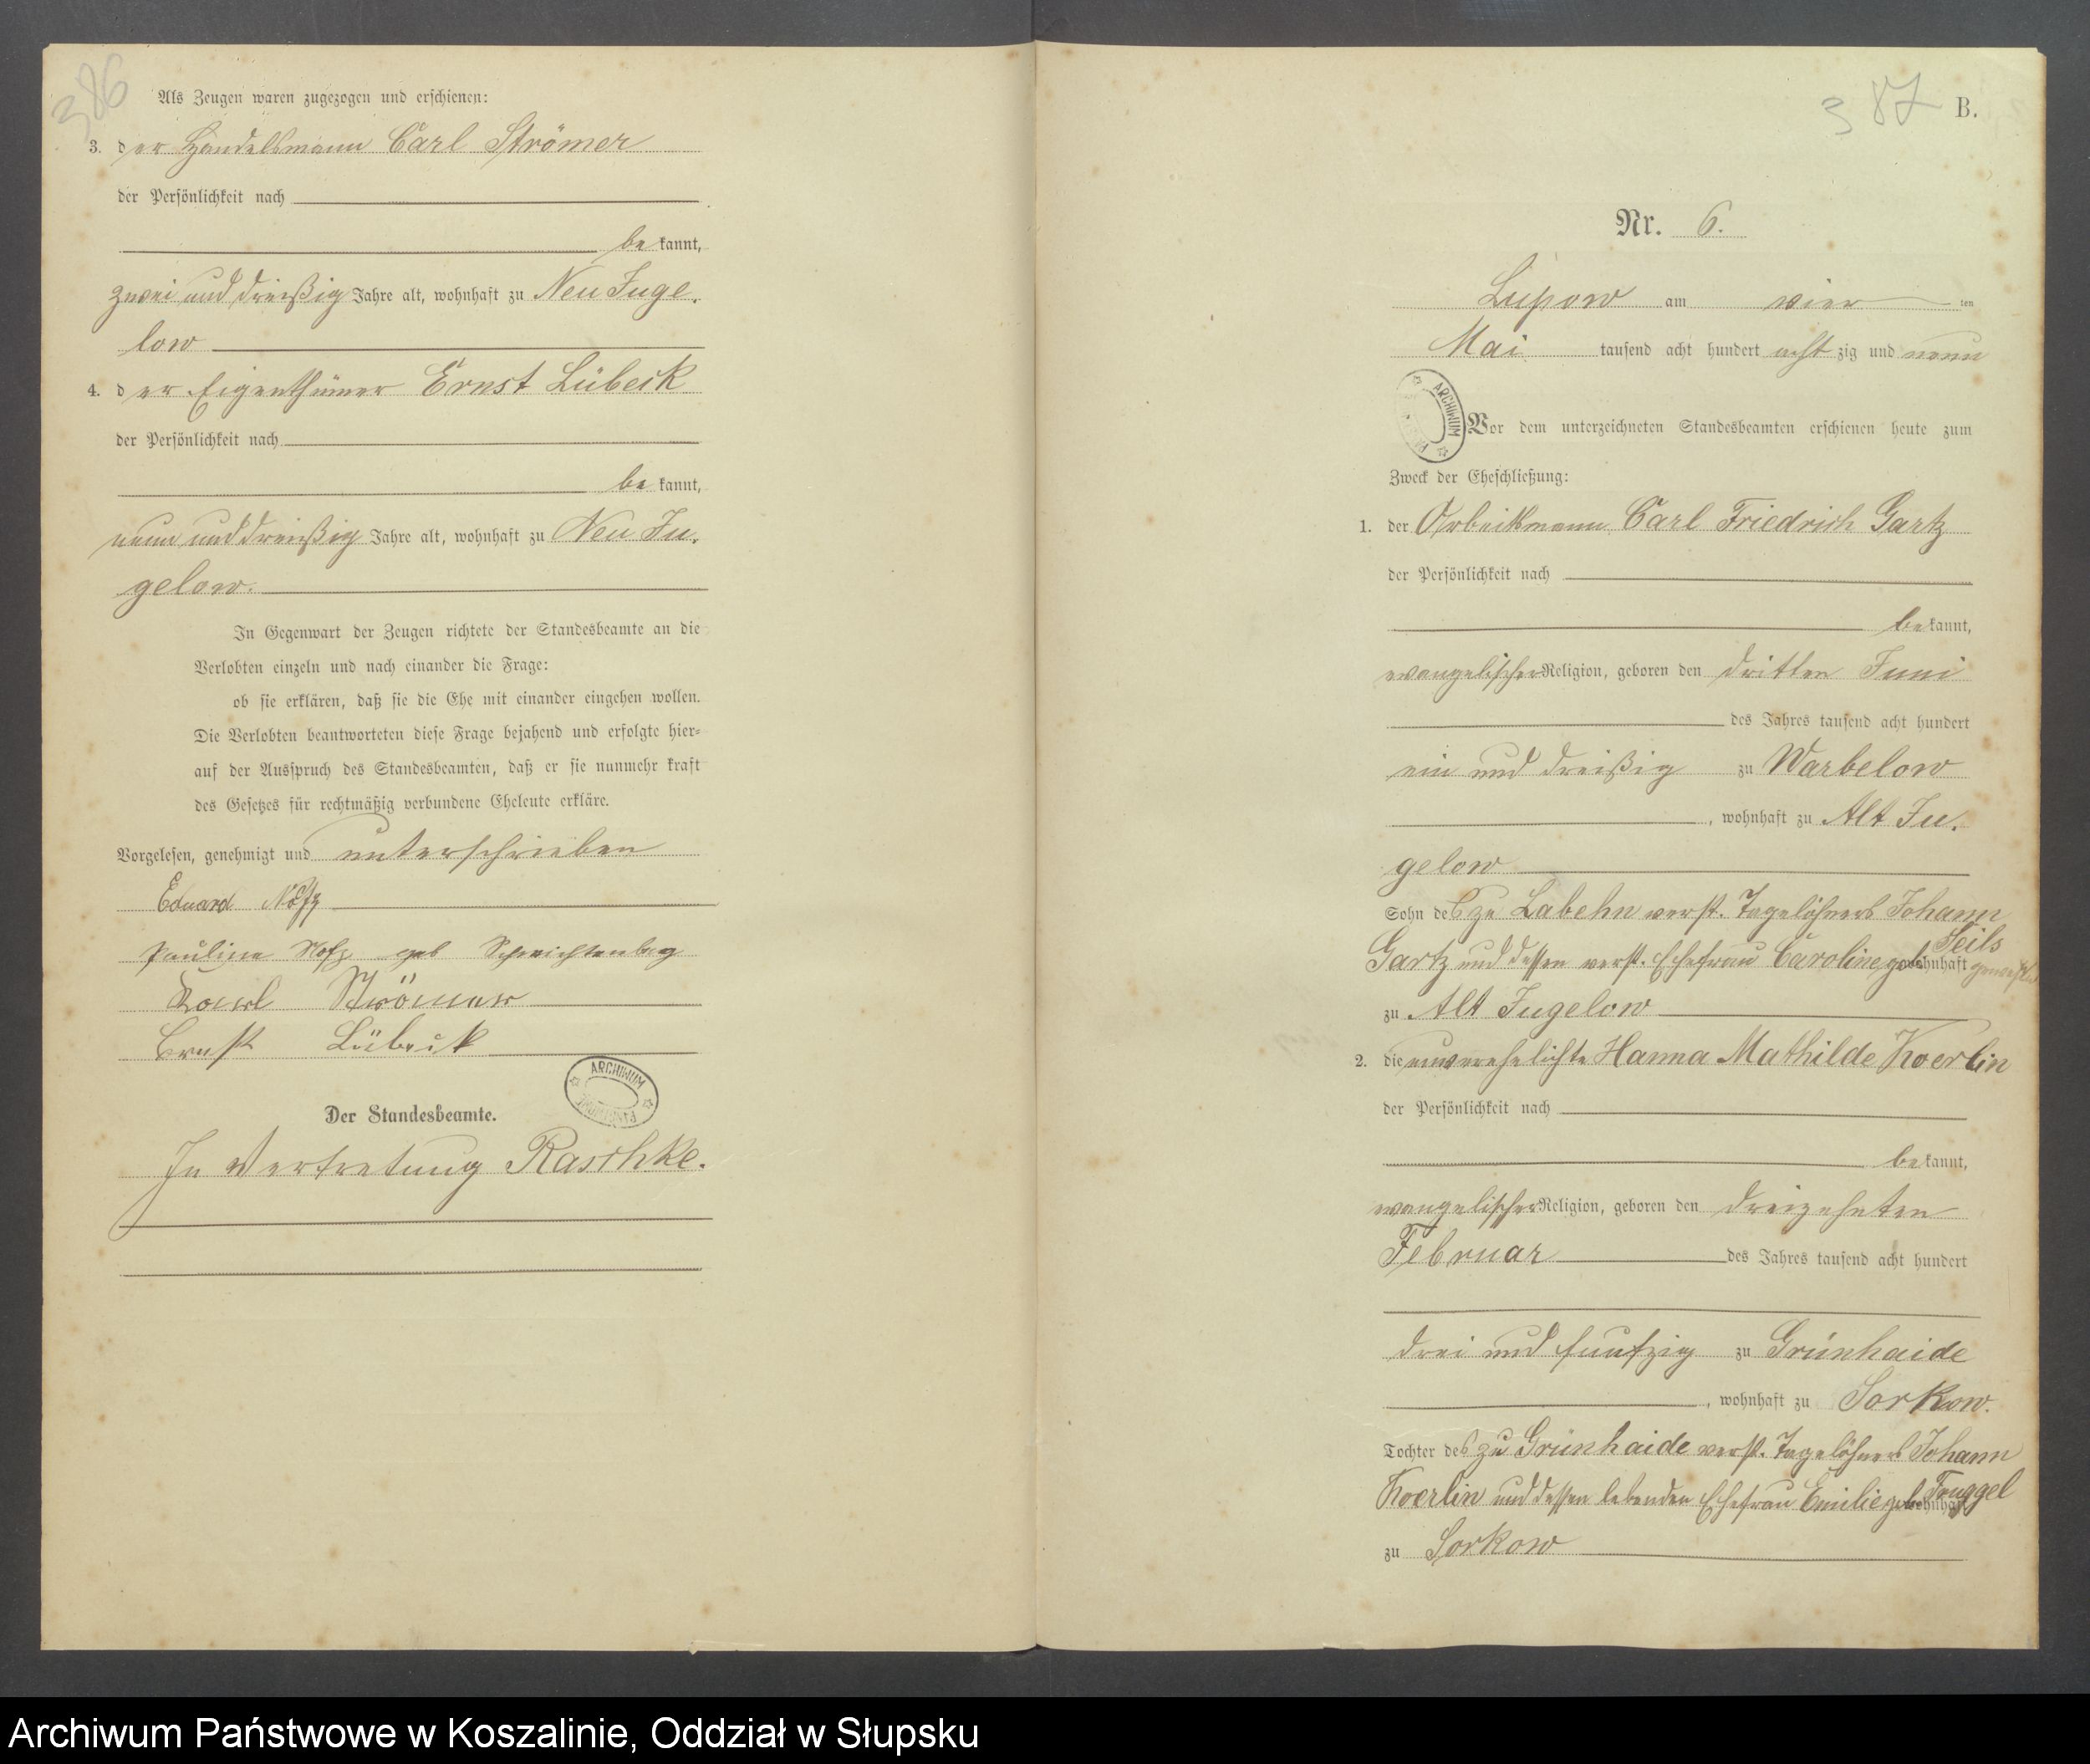 386
Als Zeugen waren zugezogen und erschienen:
3. der Handelsmann Carl Strömer
der Persönlichkeit nach
bekannt,
zwei und dreißig Jahre alt, wohnhaft zu Neu Juge-
low
4. der Eigenthümer Ernst Lübeck
der Persönlichkeit nach
bekannt,
neun und dreißig Jahre alt, wohnhaft zu Neu Ju-
gelow.
In Gegenwart der Zeugen richtete der Standesbeamte an die
Verlobten einzeln und nach einander die Frage:
ob sie erklären, daß sie die Ehe mit einander eingehen wollen.
Die Verlobten beantworteten diese Frage bejahend und erfolgte hier-
auf der Ausspruch des Standesbeamten, daß er sie nunmehr kraft
des Gesetzes für rechtmäßig verbundene Eheleute erkläre.
Vorgelesen, genehmigt und unterschrieben
Eduard
Pauline geb
Karl Strömer
Ernst Lübeck
ARCHIWUM
Der Standesbeamte.
In Vertretung Raschke.
387 B.
Nr. 6.
Lupow am vier ten
Mai tausend acht hundert achtzig und neun
ARCHIWUM
Vor dem unterzeichneten Standesbeamten erschienen heute zum
Zweck der Eheschließung:
1. der Arbeitsmann Carl Friedrich Gartz
der Persönlichkeit nach
bekannt,
evangelischer Religion, geboren den dritten Juni
des Jahres tausend acht hundert
ein und dreißig zu Warbelow
, wohnhaft zu Alt Ju-
gelow
Sohn des zu Labehn verst. Tagelöhners Johann
Gartz und dessen verst. Ehefrau Caroline, geb. Seils wohnhaft
zu Alt Jugelow
2. die unverehelichte Hanna Mathilde Koerlin
der Persönlichkeit nach
bekannt,
evangelischer Religion, geboren den dreizehnten
Februar des Jahres tausend acht hundert
drei und funfzig zu Grünhaide
, wohnhaft zu Sorkow.
Tochter des zu Grünhaide verst. Tagelöhners Johann
Koerlin und dessen lebenden Ehefrau Emilie geb. Truggel wohnhaft
zu Sorkow
Archiwum Państwowe w Koszalinie, Oddział w Słupsku